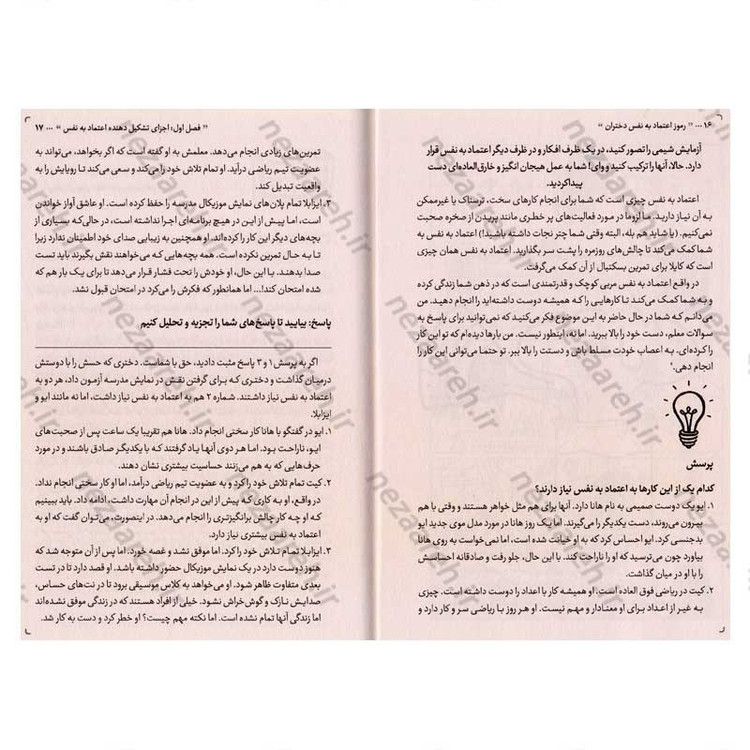 ۱۶ ... « رموز اعتماد به نفس دختران »
آزمایش شیمی را تصور کنید، در یک ظرف افکار و در ظرف دیگر اعتماد به نفس قرار
دارد. حالا، آنها را ترکیب کنید و وای! شما به عمل هیجان انگیز و خارق‌العاده‌ای دست
پیدا‌کردید.
اعتماد به نفس چیزی است که شما برای انجام کارهای سخت، ترسناک یا غیرممکن
به آن نیاز دارید. ما لزوما در مورد فعالیت‌های پر خطری مانند پریدن از صخره صحبت
نمی‌کنیم. (یا شاید هم بله، البته وقتی شما چتر نجات داشته باشید!) اعتماد به نفس به
شما کمک می‌کند تا چالش‌های روزمره را پشت سر بگذارید. اعتماد به نفس همان چیزی
است که کایلا برای تمرین بسکتبال از آن کمک می‌گرفت.
در واقع اعتماد به نفس مربی کوچک و قدرتمندی است که در ذهن شما زندگی کرده
و به شما کمک می‌کند تا کارهایی را که همیشه دوست داشته‌اید را انجام دهید. من
می‌دانم که شما در حال حاضر به این موضوع فکر می‌کنید که نمی‌توانید برای پاسخ به
سوالات معلم، دست خود را بالا ببرید. اما نه، اینطور نیست. من بارها دیده‌ام که تو این کار
را کرده‌ای. به اعصاب خودت مسلط باش و دستت را بالا ببر. تو حتما می‌توانی این کار را
انجام دهی.
پرسش
کدام یک از این کارها به اعتماد به نفس نیاز دارند؟
۱. ایو یک دوست صمیمی به نام هانا دارد. آنها برای هم مثل خواهر هستند و وقتی با هم
بیرون می‌روند، دست یکدیگر را می‌گیرند. اما یک روز هانا در مورد مدل موی جدید ایو
بدجنسی کرد. ایو احساس کرد که به او خیانت شده است، اما نمی‌خواست به روی هانا
بیاورد چون می‌ترسید که او را ناراحت کند. با این حال، جلو رفت و صادقانه احساسش
را با او در میان گذاشت.
۲. کیت در ریاضی فوق العاده است. او همیشه کار با اعداد را دوست داشته است. چیزی
به غیر از اعداد برای او معنادار و مهم نیست. او هر روز با ریاضی سر و کار دارد و
« فصل اول: اجزای تشکیل دهنده اعتماد به نفس » ... ۱۷
تمرین‌های زیادی انجام می‌دهد. معلمش به او گفته است که اگر بخواهد، می‌تواند به
عضویت تیم ریاضی درآید. او تمام تلاش خود را می‌کند و سعی می‌کند تا رویایش را به
واقعیت تبدیل کند.
۳. ایزابلا تمام پلان‌های نمایش موزیکال مدرسه را حفظ کرده است. او عاشق آواز خواندن
است، اما پیش از این در هیچ برنامه‌ای اجرا نداشته است، در حالی‌که بسیاری از
بچه‌های دیگر این کار را کرده‌اند. او همچنین به زیبایی صدای خود اطمینان ندارد زیرا
تا به حال تمرین نکرده است. همه بچه‌هایی که می‌خواهند نقش بگیرند باید تست
صدا بدهند. با این حال، او خودش را تحت فشار قرار می‌دهد تا برای یک بار هم که
شده امتحان کند!... اما همانطور که فکرش را می‌کرد در امتحان قبول نشد.
پاسخ: بیایید تا پاسخ‌های شما را تجزیه و تحلیل کنیم
اگر به پرسش ۱ و ۳ پاسخ مثبت دادید، حق با شماست. دختری که حسش را با دوستش
درمیان گذاشت و دختری که برای گرفتن نقش در نمایش مدرسه آزمون داد، هر دو به
اعتماد به نفس نیاز داشتند. شماره ۲ هم به اعتماد به نفس نیاز داشت، اما نه مانند ایو و
ایزابلا.
۱. ایو در گفتگو با هانا کار سختی انجام داد. هانا هم تقریبا یک ساعت پس از صحبت‌های
ایو، ناراحت بود. اما هر دوی آنها یاد گرفتند که با یکدیگر صادق باشند و در مورد
حرف‌هایی که به هم می‌زنند حساسیت بیشتری نشان دهند.
۲. کیت تمام تلاش خود را کرد و به عضویت تیم ریاضی درآمد، اما او کار سختی انجام نداد.
در واقع، او به کاری که پیش از این در انجام آن مهارت داشت، ادامه داد. باید ببینیم
که او چه کار چالش برانگیزتری را انجام می‌دهد. در اینصورت، می‌توان گفت که او به
اعتماد به نفس بیشتری نیاز دارد.
۳. ایزابلا تمام تلاش خود را کرد. اما موفق نشد و غصه خورد. اما پس از آن متوجه شد که
هنوز دوست دارد در یک نمایش موزیکال حضور داشته باشد. او قصد دارد تا در تست
بعدی متفاوت ظاهر شود. او می‌خواهد به کلاس موسیقی برود تا در نت‌های حساس،
صدایش نازک و گوش‌خراش نشود. خیلی از افراد هستند که در زندگی موفق نشده‌اند
اما زندگی آنها تمام نشده است. اما نکته مهم چیست؟ او خطر کرد و دست به کار شد.
nezaareh.ir